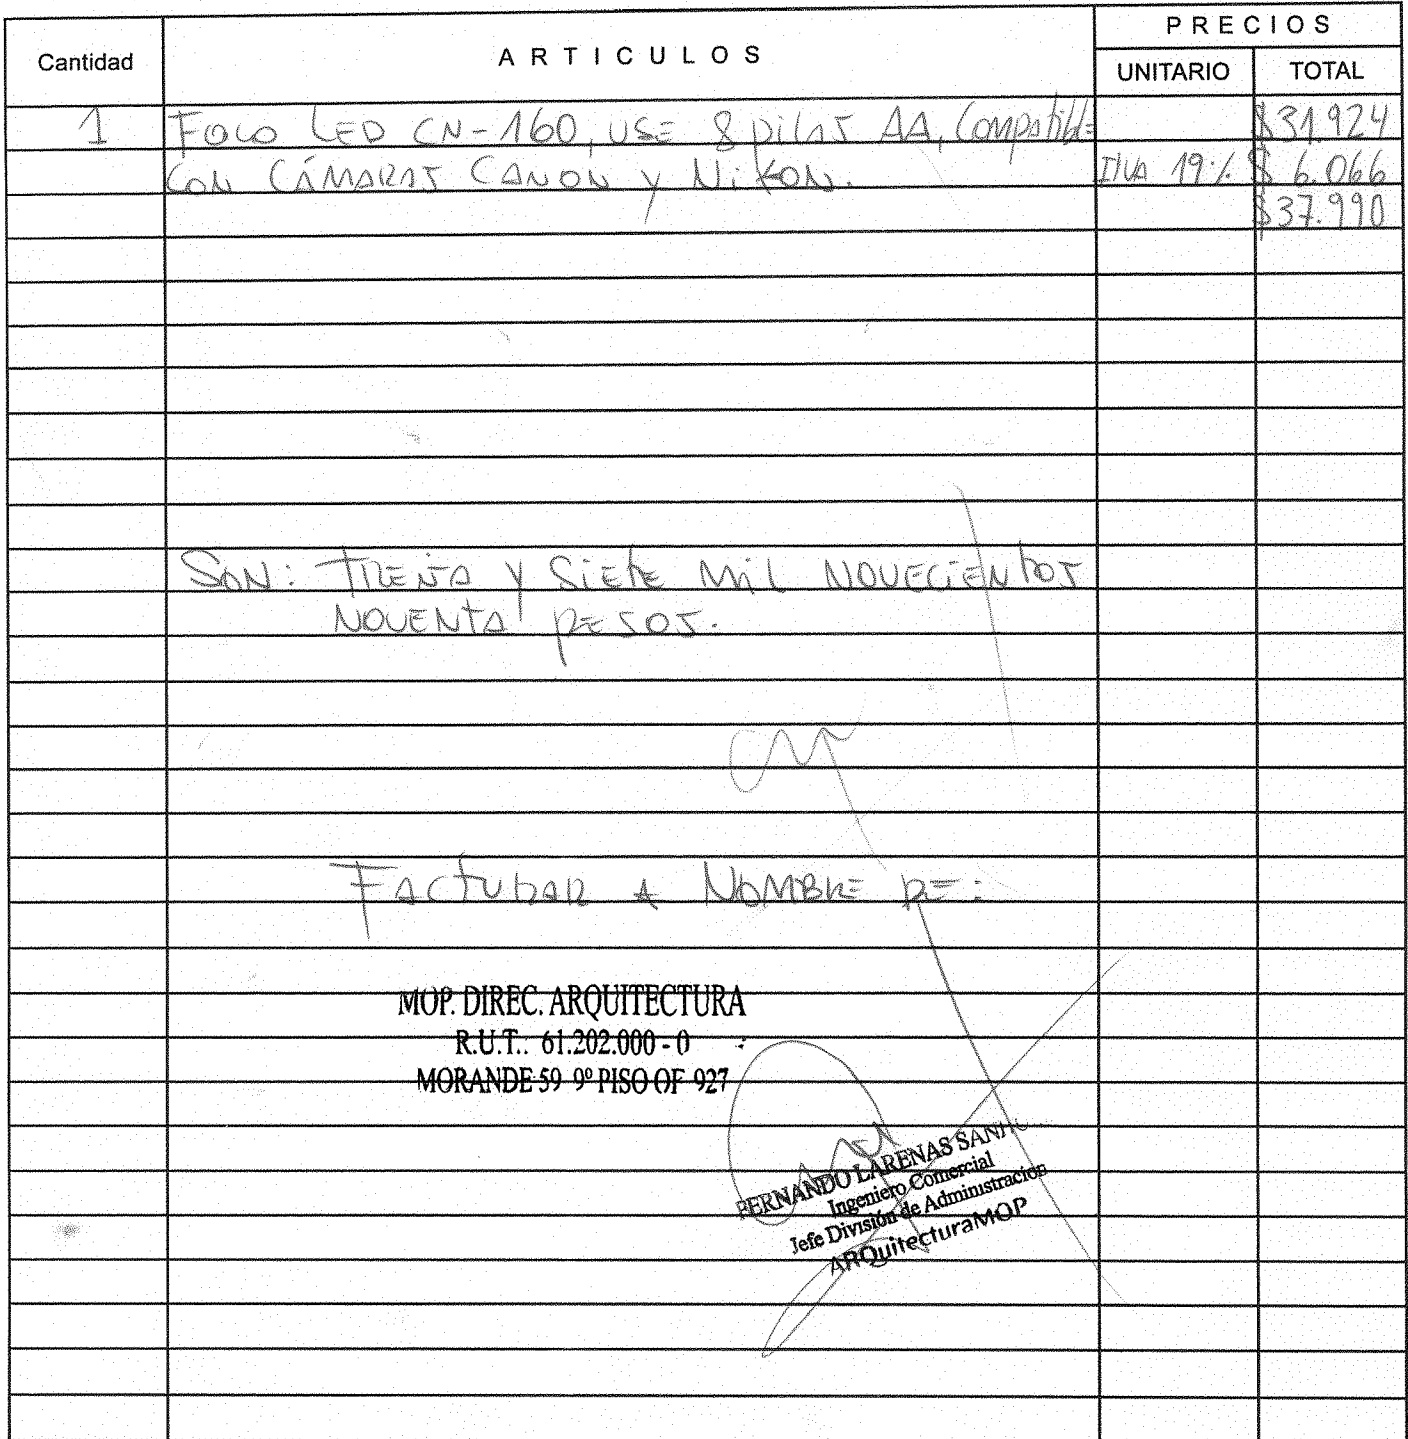 PRECIOS
Cantidad ARTICULOS UNITARIO TOTAL
1 FOCO LED CN-160, USE 8 pilas AA, Compatible $31.924
CON CÁMARAS CANON Y NiKON. IVA 19% $ 6.066
$37.990
SON: TREiTA Y SiETE MiL NOVECIENTOS
NOVENTA PESOS.
FACTURAR A NOMBRE DE:
MOP. DIREC. ARQUITECTURA
R.U.T.: 61.202.000 - 0
MORANDE 59 9º PISO OF 927
FERNANDO LARENAS
Ingeniero Comercial
Jefe División de Administración
ARQuitecturaMOP